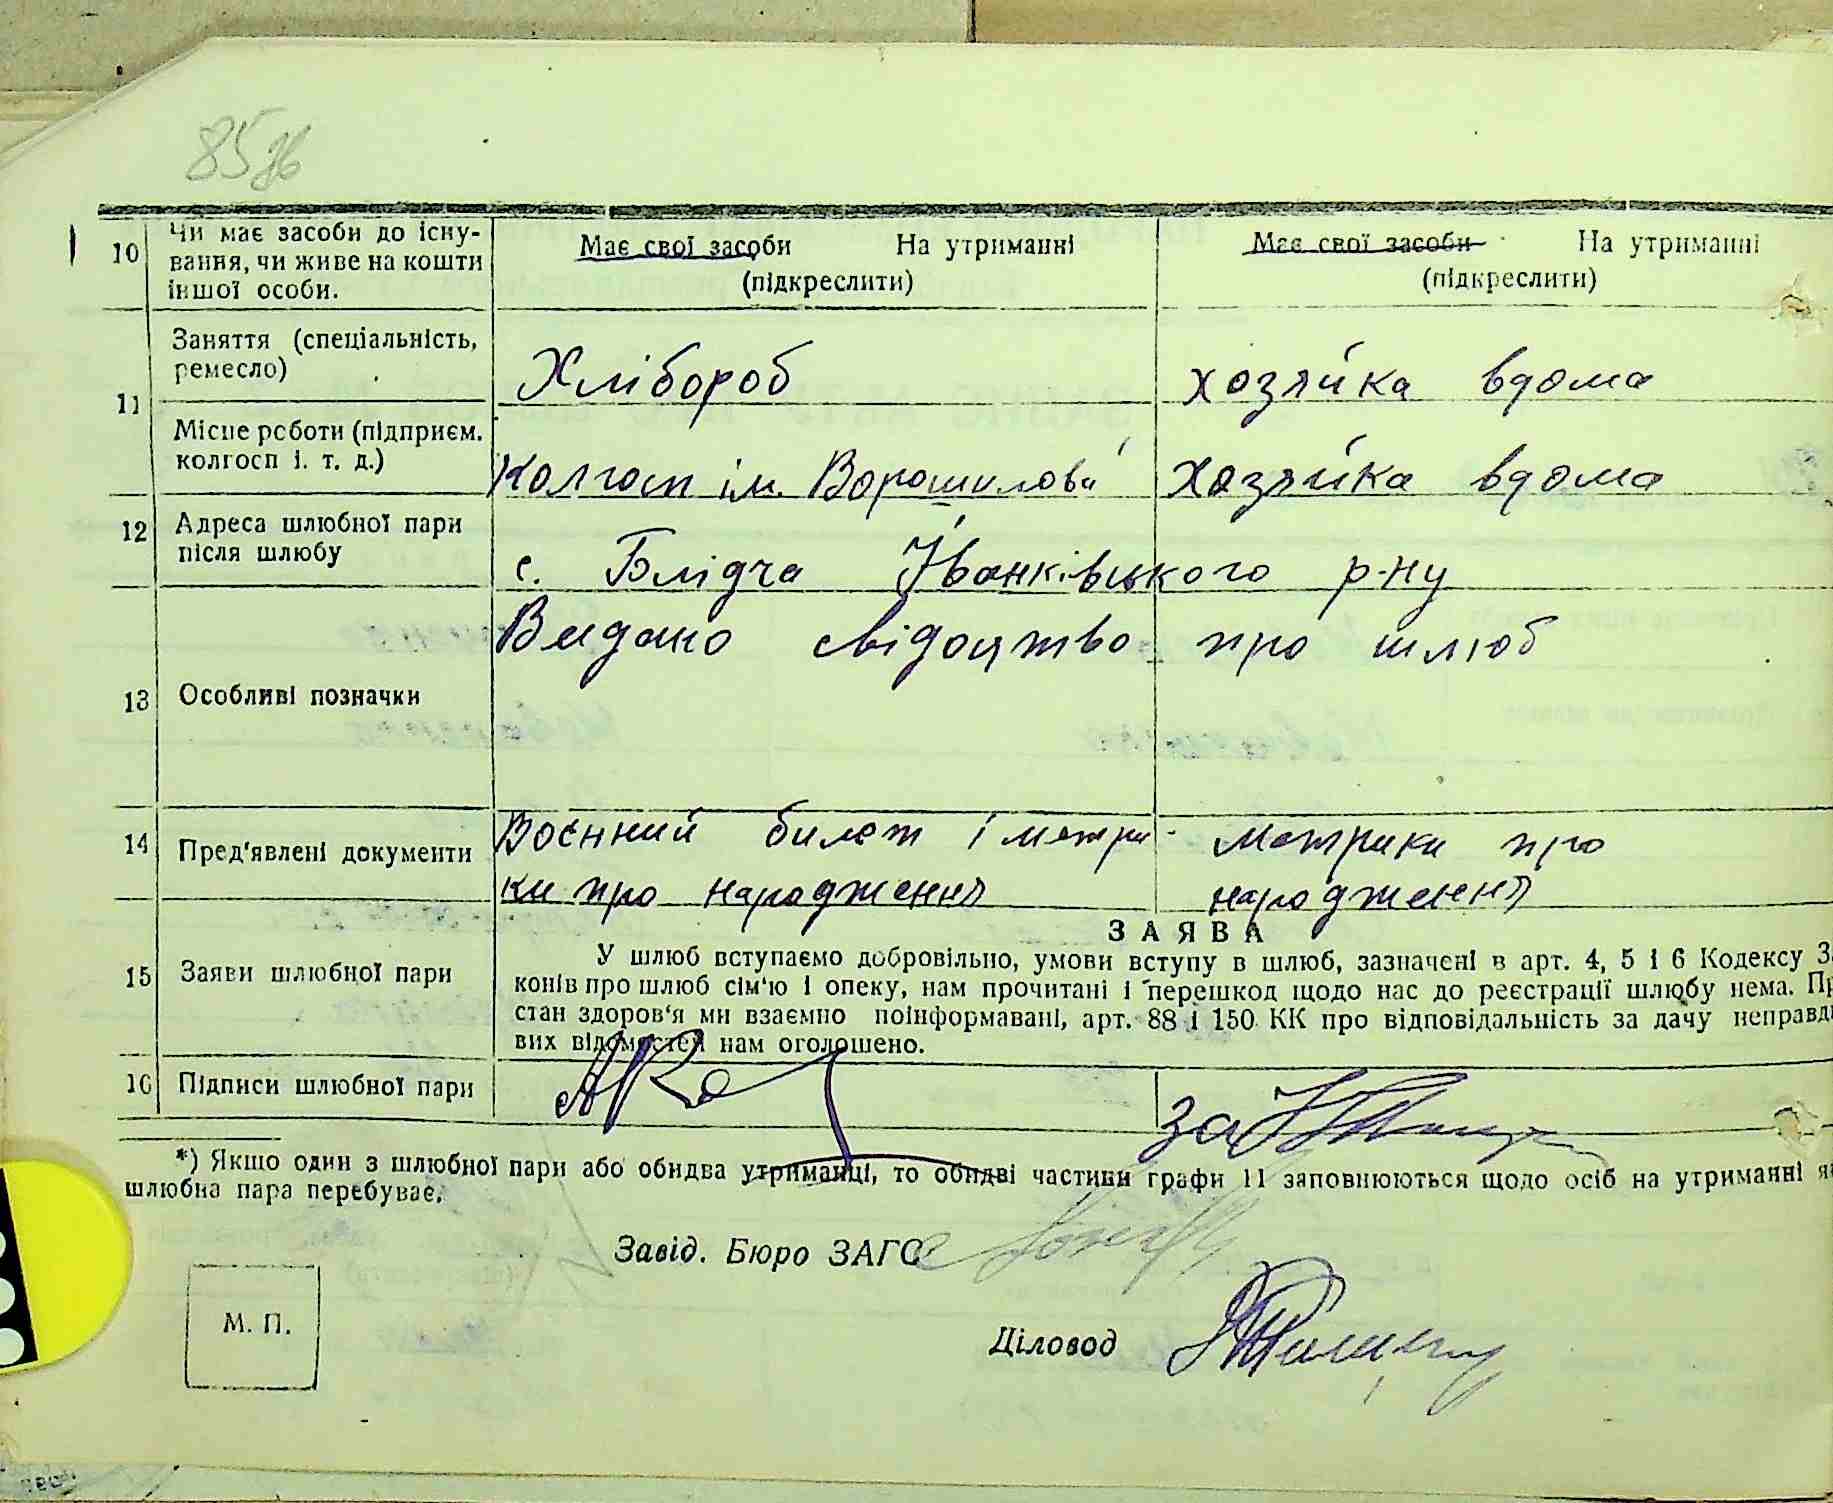 85зв
10 Чи має засоби до існу-
вання, чи живе на кошти
іншої особи.
Має свої засоби На утриманні
(підкреслити)
Має свої засоби На утриманні
(підкреслити)
11 Заняття (спеціальність,
ремесло)
Хлібороб
хозяйка вдома
Місце роботи (підприєм.
колгосп і. т. д.)
Колгосп ім. Ворошилова
Хозяйка вдома
12 Адреса шлюбної пари
після шлюбу
с. Блідча Іванківського р-ну
13 Особливі позначки
Видано свідоцтво про шлюб
14 Пред'явлені документи
Воєнний билет і метри-
ки про народження
метрики про
народження
15 Заяви шлюбної пари
ЗАЯВА
У шлюб вступаємо добровільно, умови вступу в шлюб, зазначені в арт. 4, 5 і 6 Кодексу За
конів про шлюб сім'ю і опеку, нам прочитані і перешкод щодо нас до реєстрації шлюбу нема. Пр
стан здоров'я ми взаємно поінформавані, арт. 88 і 150 КК про відповідальність за дачу неправди
вих відомостей нам оголошено.
16 Підписи шлюбної пари
за
*) Якщо один з шлюбної пари або обидва утриманці, то обидві частини графи 11 заповнюються щодо осіб на утриманні як
шлюбна пара перебуває.
Завід. Бюро ЗАГС
М. П.
Діловод